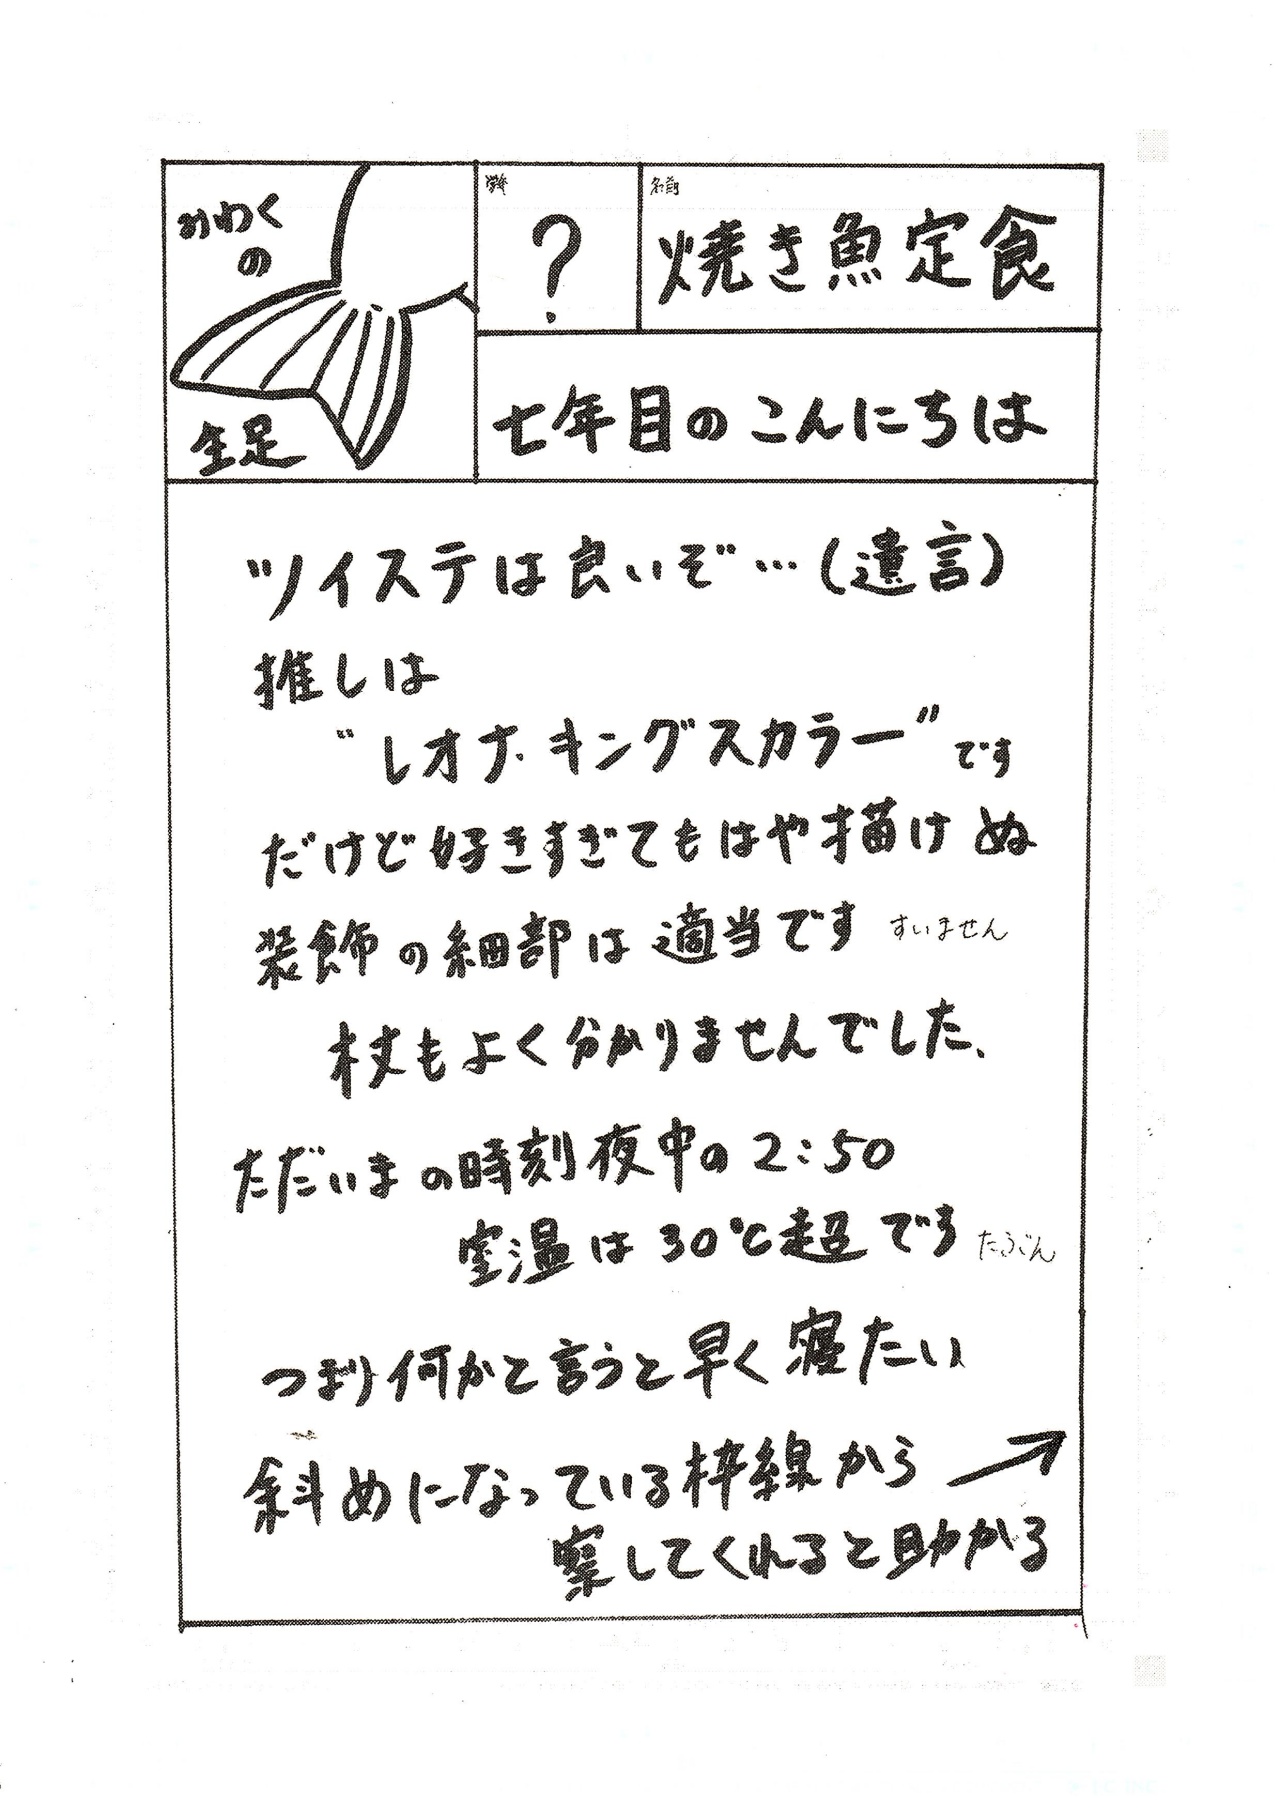 みわく
の
生足
学年
?
名前
焼き魚定食
七年目のこんにちは
ツイステは良いぞ…(遺言)
推しは
“レオナ・キングスカラー”です
だけど好きすぎてもはや描けぬ
装飾の細部は適当です すいません
杖もよく分かりませんでした、
ただいまの時刻夜中の2:50
室温は30℃超です たぶん
つまり何かと言うと早く寝たい
斜めになっている枠線から →
察してくれると助かる